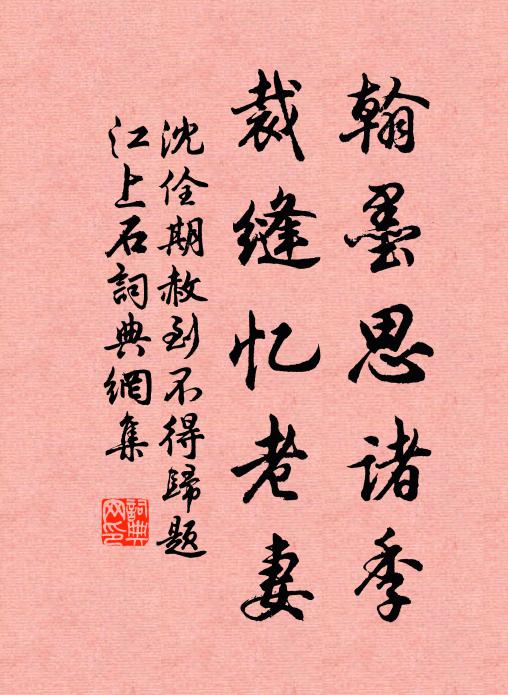 翰墨思诸季
裁缝忆老妻
沈佺期赦到不得歸题
江上石詞典網集
詞典網印